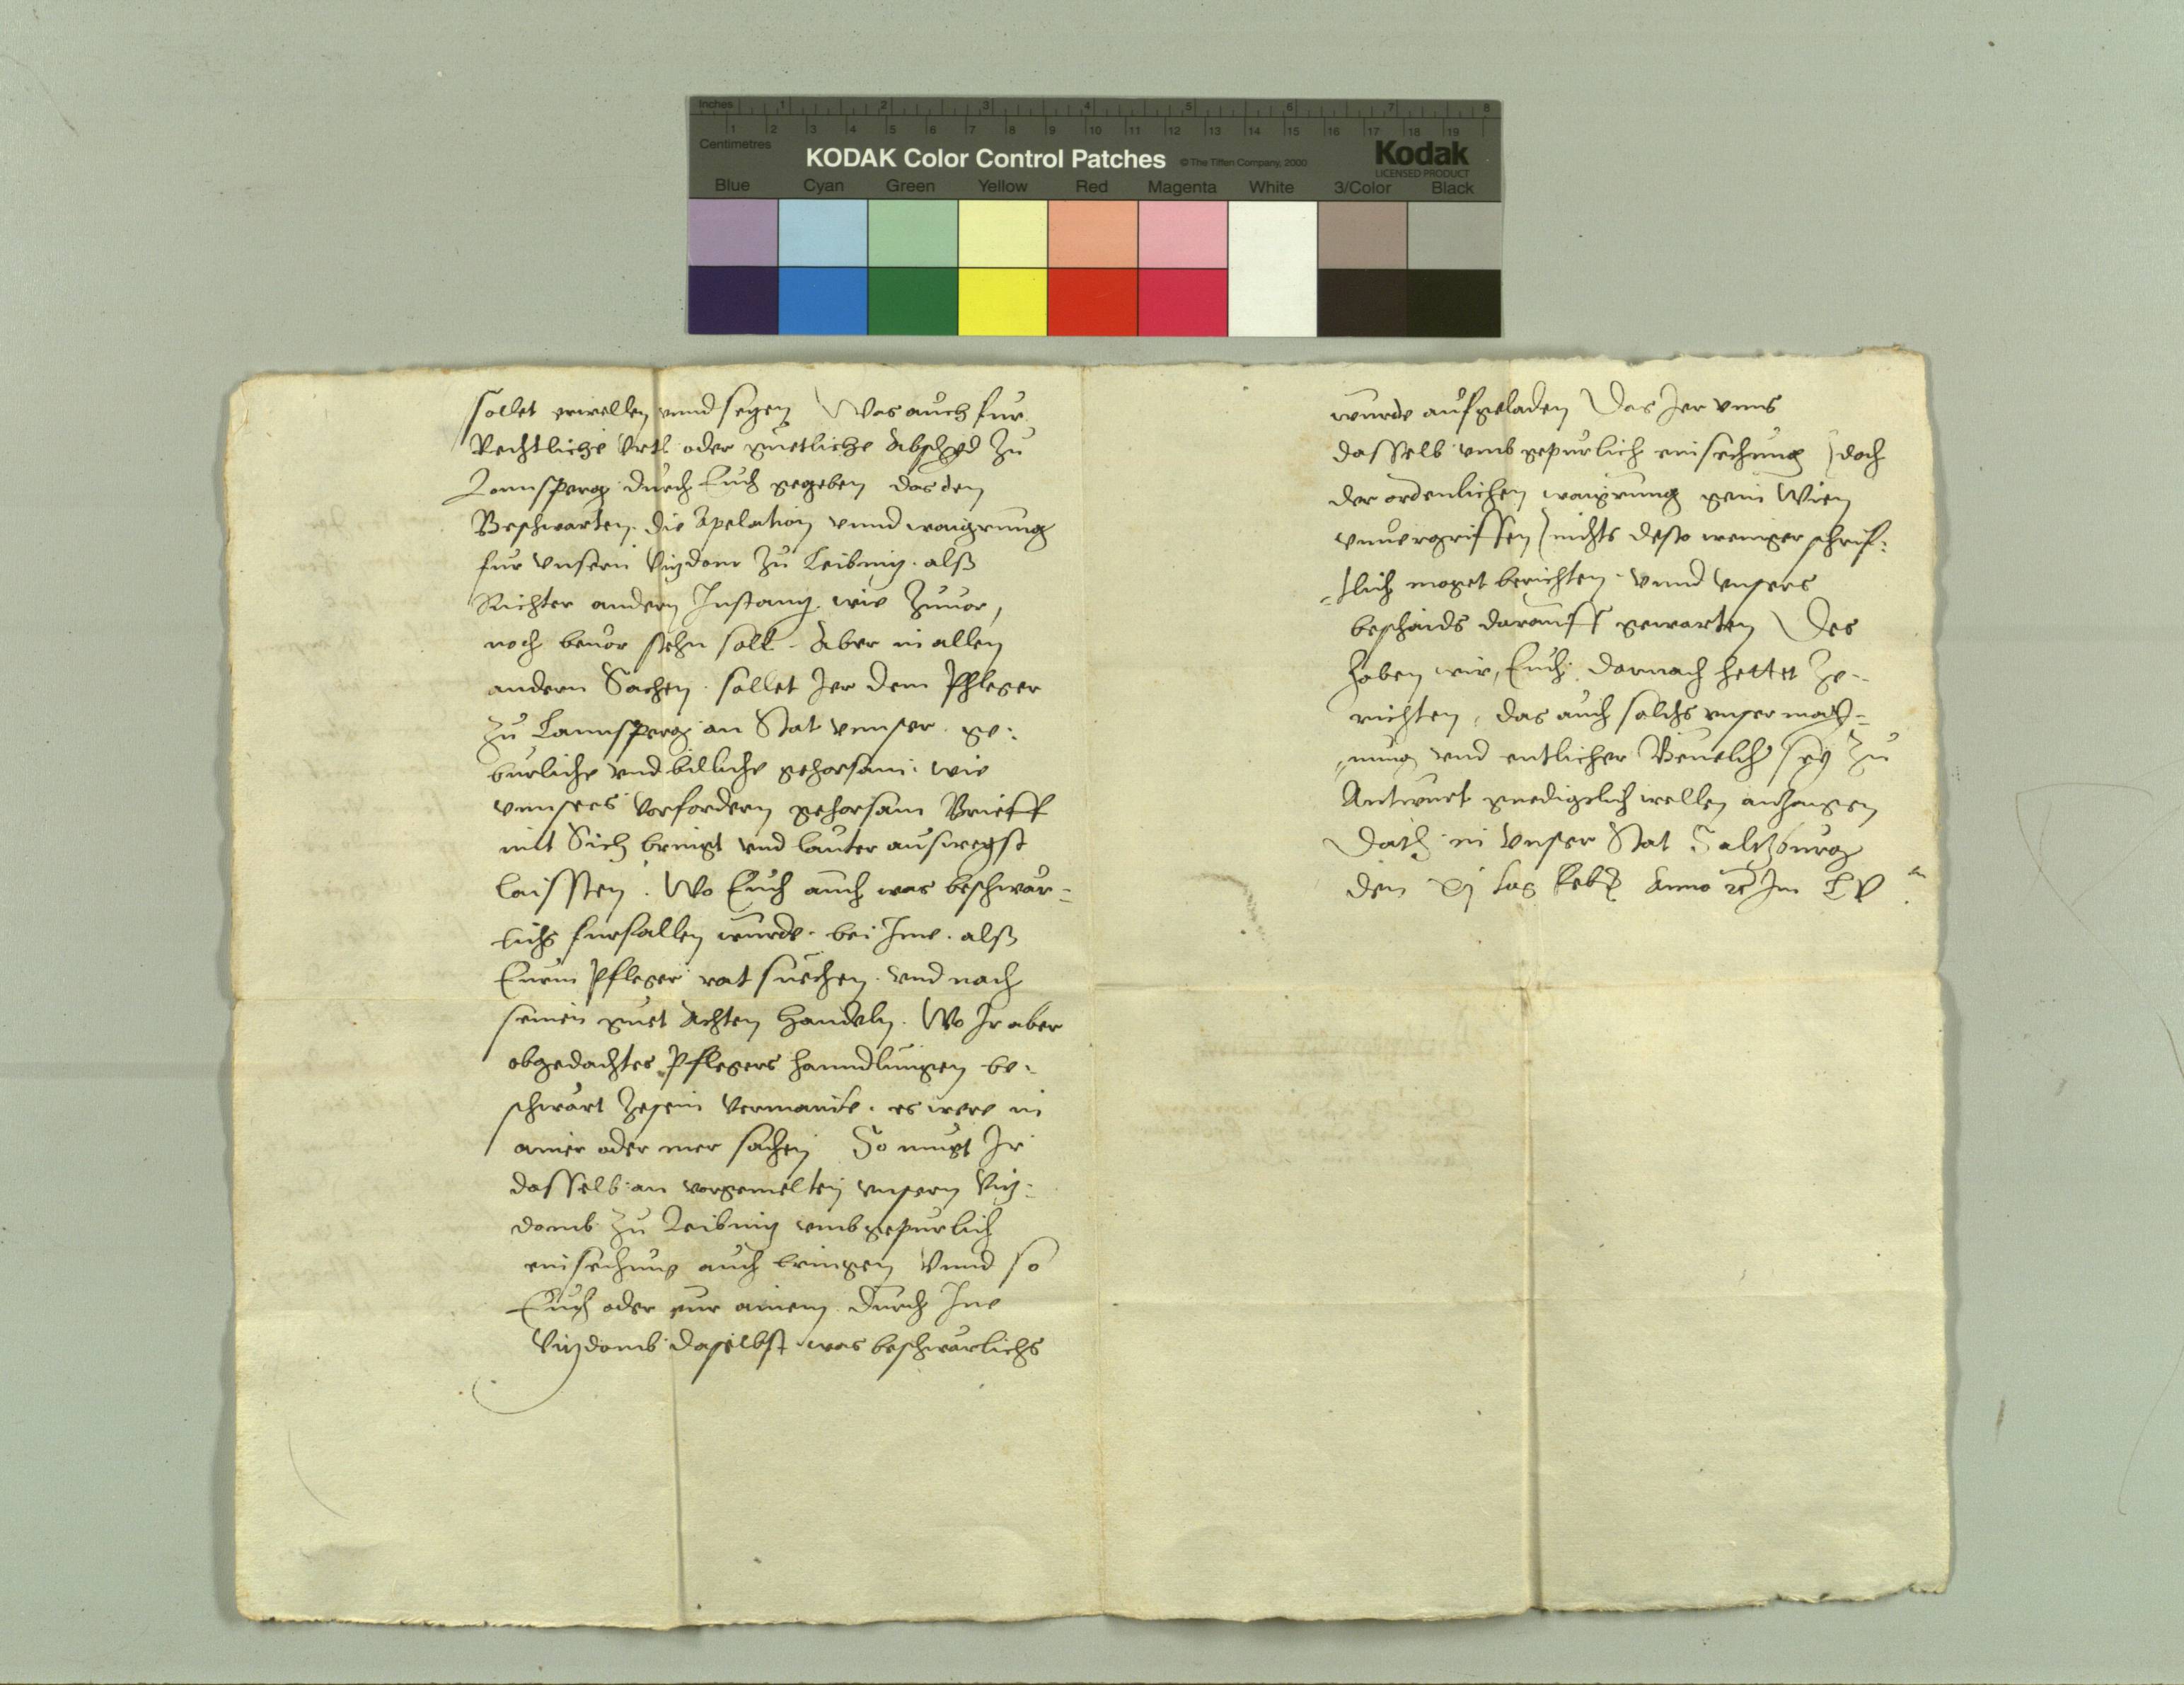 Inches 1 2 3 4 5 6 7 8
1 2 3 4 5 6 7 8 9 10 11 12 13 14 15 16 17 18 19
Centimetres
KODAK Color Control Patches © The Tiffen Company, 2000 Kodak
LICENSED PRODUCT
Blue Cyan Green Yellow Red Magenta White 3/Color Black
sollet erwellen unnd seczen Was auch fur
Rechtliche Urtl oder guetliche Abschyd Zu
Lannsperg durch Euch gegeben das den
Beschwarten die Apelation unnd waigrung
fur unsern Vizdom zu Leibniz alß
Richter andern Instanz wie Zuuor,
noch beuor stehn soll Aber in allen
andern Sachen sollet Jer dem Phleger
zu Lannsperg an Stat unnser ge:
burliche und billiche gehorsam wie
unnsers Vorfordern gehorsam Brieff
mit Sich bringt und lauter ausweyst
laissten. Wo Euch auch was beschwar=
lichs furfallen wurde bei Jme alß
Eurm Pfleger rat suechen und nach
seinen guet Achten Handeln. Wo Jr aber
obgedachtes Pflegers hanndlungen be:
schwart zesein vermainte es were in
ainer oder mer sachen So mugt Jr
dasselb an vorgemelten unsern Viz:
domb zu Leibniz umb gepurlich
einsechung auch bringen Unnd so
Euch oder eur ainem durch Jne
Vizdomb daselbst was beschwarlichs
wurde aufgeladen Das Jer unns
dasselb umb gepurlich einsechung (doch
der ordenlichen waigrung gein Wien
unuergriffen) nichts desto weniger schrif:
=tlich moget berichten unnd unsers
beschaids darauff gewarten Des
haben wir, Euch darnach hettet ze=
richten, das auch solchs unser may=
=nung und entlicher Beuelch sey Zu
Antwurt gnedigclich wellen anzaigen
Datum in unser Stat Salzburg
den xj tag Feb Anno Im LV